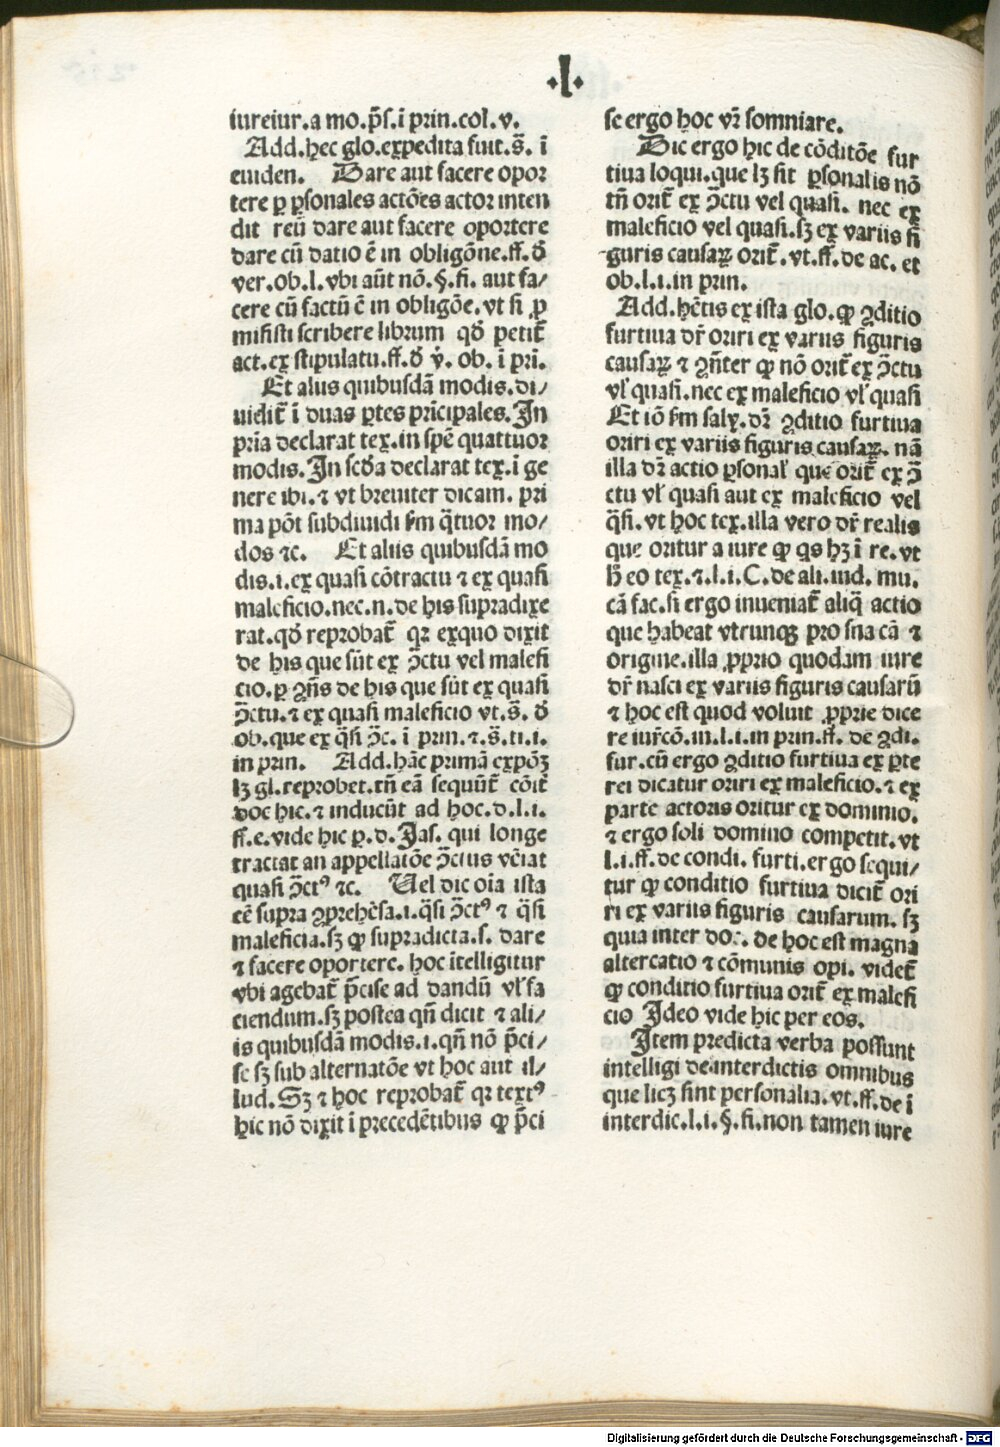 ·l·
iureiur.a mo.p̄s.ī prin.col.v.
Add.hec glo.expedita fuit.s̄. ī
euiden. Dare aut facere opor
tere ꝑ ꝑsonales actōes actor inten
dit reū dare aut facere oportere
dare cū datio ē in obligōne.ff.ð
ver.ob.l.vbi aūt nō.§.fi. aut fa/
cere cū factū ē in obligōe.vt si ꝓ
misisti scribere librum qð petit̄
act.ex stipulatu.ff.ð v̄. ob. ī prī.
Et aliis quibusdā modis.di/
uidit̄ ī duas ꝑtes prīcipales.In
pria declarat tex.in spē quattuor
modis.In scða declarat tex.ī ge
nere ibi.⁊ vt breuiter dicam. pri
ma pōt subdiuidi ẜm q̄tuor mo/
dos ⁊c. Et aliis quibusdā mo
dis.i.ex quasi cōtractu ⁊ ex quasi
maleficio.nec.n.de his supradixe
rat.qð reprobat̄ qꝛ exquo dixit
de his que sūt ex ꝯ̄ctu vel malefi
cio.ꝑ ꝯn̄s de his que sūt ex quasi
ꝯ̄ctu.⁊ ex quasi maleficio vt.s̄. ð
ob.que ex q̄si ꝯ̄c. ī prin.⁊.s̄.ti.i.
in prin. Add.hāc primā expōꝫ
lꝫ gl.reprobet.tn̄ eā sequūt̄ cōit̄
doc hic.⁊ inducūt ad hoc.d.l.i.
ff.e.vide hic ꝑ.d.Jas. qui longe
tractat an appellatōe ꝯ̄ctus vēiat
quasi ꝯ̄ctꝰ ⁊c. Uel dic oīa ista
eē supra ꝯprehēsa.i.q̄si ꝯ̄ctꝰ ⁊ q̄si
maleficia.sꝫ ꝙ supradicta.s. dare
⁊ facere oportere. hoc ītelligitur
vbi agebat̄ p̄cise ad dandū vl̓ fa
ciendum.sꝫ postea qn̄ dicit ⁊ ali/
is quibusdā modis.i.qn̄ nō p̄ci/
se sꝫ sub alternatōe vt hoc aut il/
lud.Sꝫ ⁊ hoc reprobat̄ qꝛ textꝰ
hic nō dixit ī precedētibus ꝙ p̄ci
se ergo hoc vr̄ somniare.
Dic ergo hic de cōditōe fur
tiua loqui.que lꝫ sit ꝑsonalis nō
tn̄ orit̄ ex ꝯ̄ctu vel quasi. nec ex
maleficio vel quasi.sꝫ ex variis fi
guris causaꝝ orit̄.vt.ff.de ac. et
ob.l.i.in prin.
Add.hētis ex ista glo.ꝙ ꝯditio
furtiua dr̄ oriri ex variis figuris
causaꝝ ⁊ ꝯn̄ter ꝙ nō orit̄ ex ꝯ̄ctu
vl̓ quasi.nec ex maleficio vl̓ quasi
Et iō ẜm saly.dr̄ ꝯditio furtiua
oriri ex variis figuris causaꝝ. nā
illa dr̄ actio ꝑsonal̓ que orit̄ ex ꝯ̄
ctu vl̓ quasi aut ex maleficio vel
q̄si.vt hoc tex.illa vero dr̄ realis
que oritur a iure ꝙ qs hꝫ ī re.vt
h̄ eo tex.⁊.l.i.C.de ali.iud. mu.
cā fac.si ergo inueniat̄ aliq̄ actio
que habeat vtrunqꝫ pro sua cā ⁊
origine.illa ꝓprio quodam iure
dr̄ nasci ex variis figuris causarū
⁊ hoc est quod voluit ꝓprie dice
re iur̄cō.in.l.i.in prin.ff. de ꝯdi.
fur.cū ergo ꝯditio furtiua ex ꝑte
rei dicatur oriri ex maleficio.⁊ ex
parte actoris oritur ex dominio.
⁊ ergo soli domino competit.vt
l.i.ff.de condi. furti.ergo sequi/
tur ꝙ conditio furtiua dicit̄ ori
ri ex variis figuris causarum. sꝫ
quia inter doc. de hoc est magna
altercatio ⁊ cōmunis opi. videt̄
ꝙ conditio furtiua orit̄ ex malefi
cio Ideo vide hic per eos.
Item predicta verba possunt
intelligi de interdictis omnibus
que licꝫ sint personalia.vt.ff.de ī
interdic.l.i.§.fi.non tamen iure
Digitalisierung gefördert durch die Deutsche Forschungsgemeinschaft - DFG